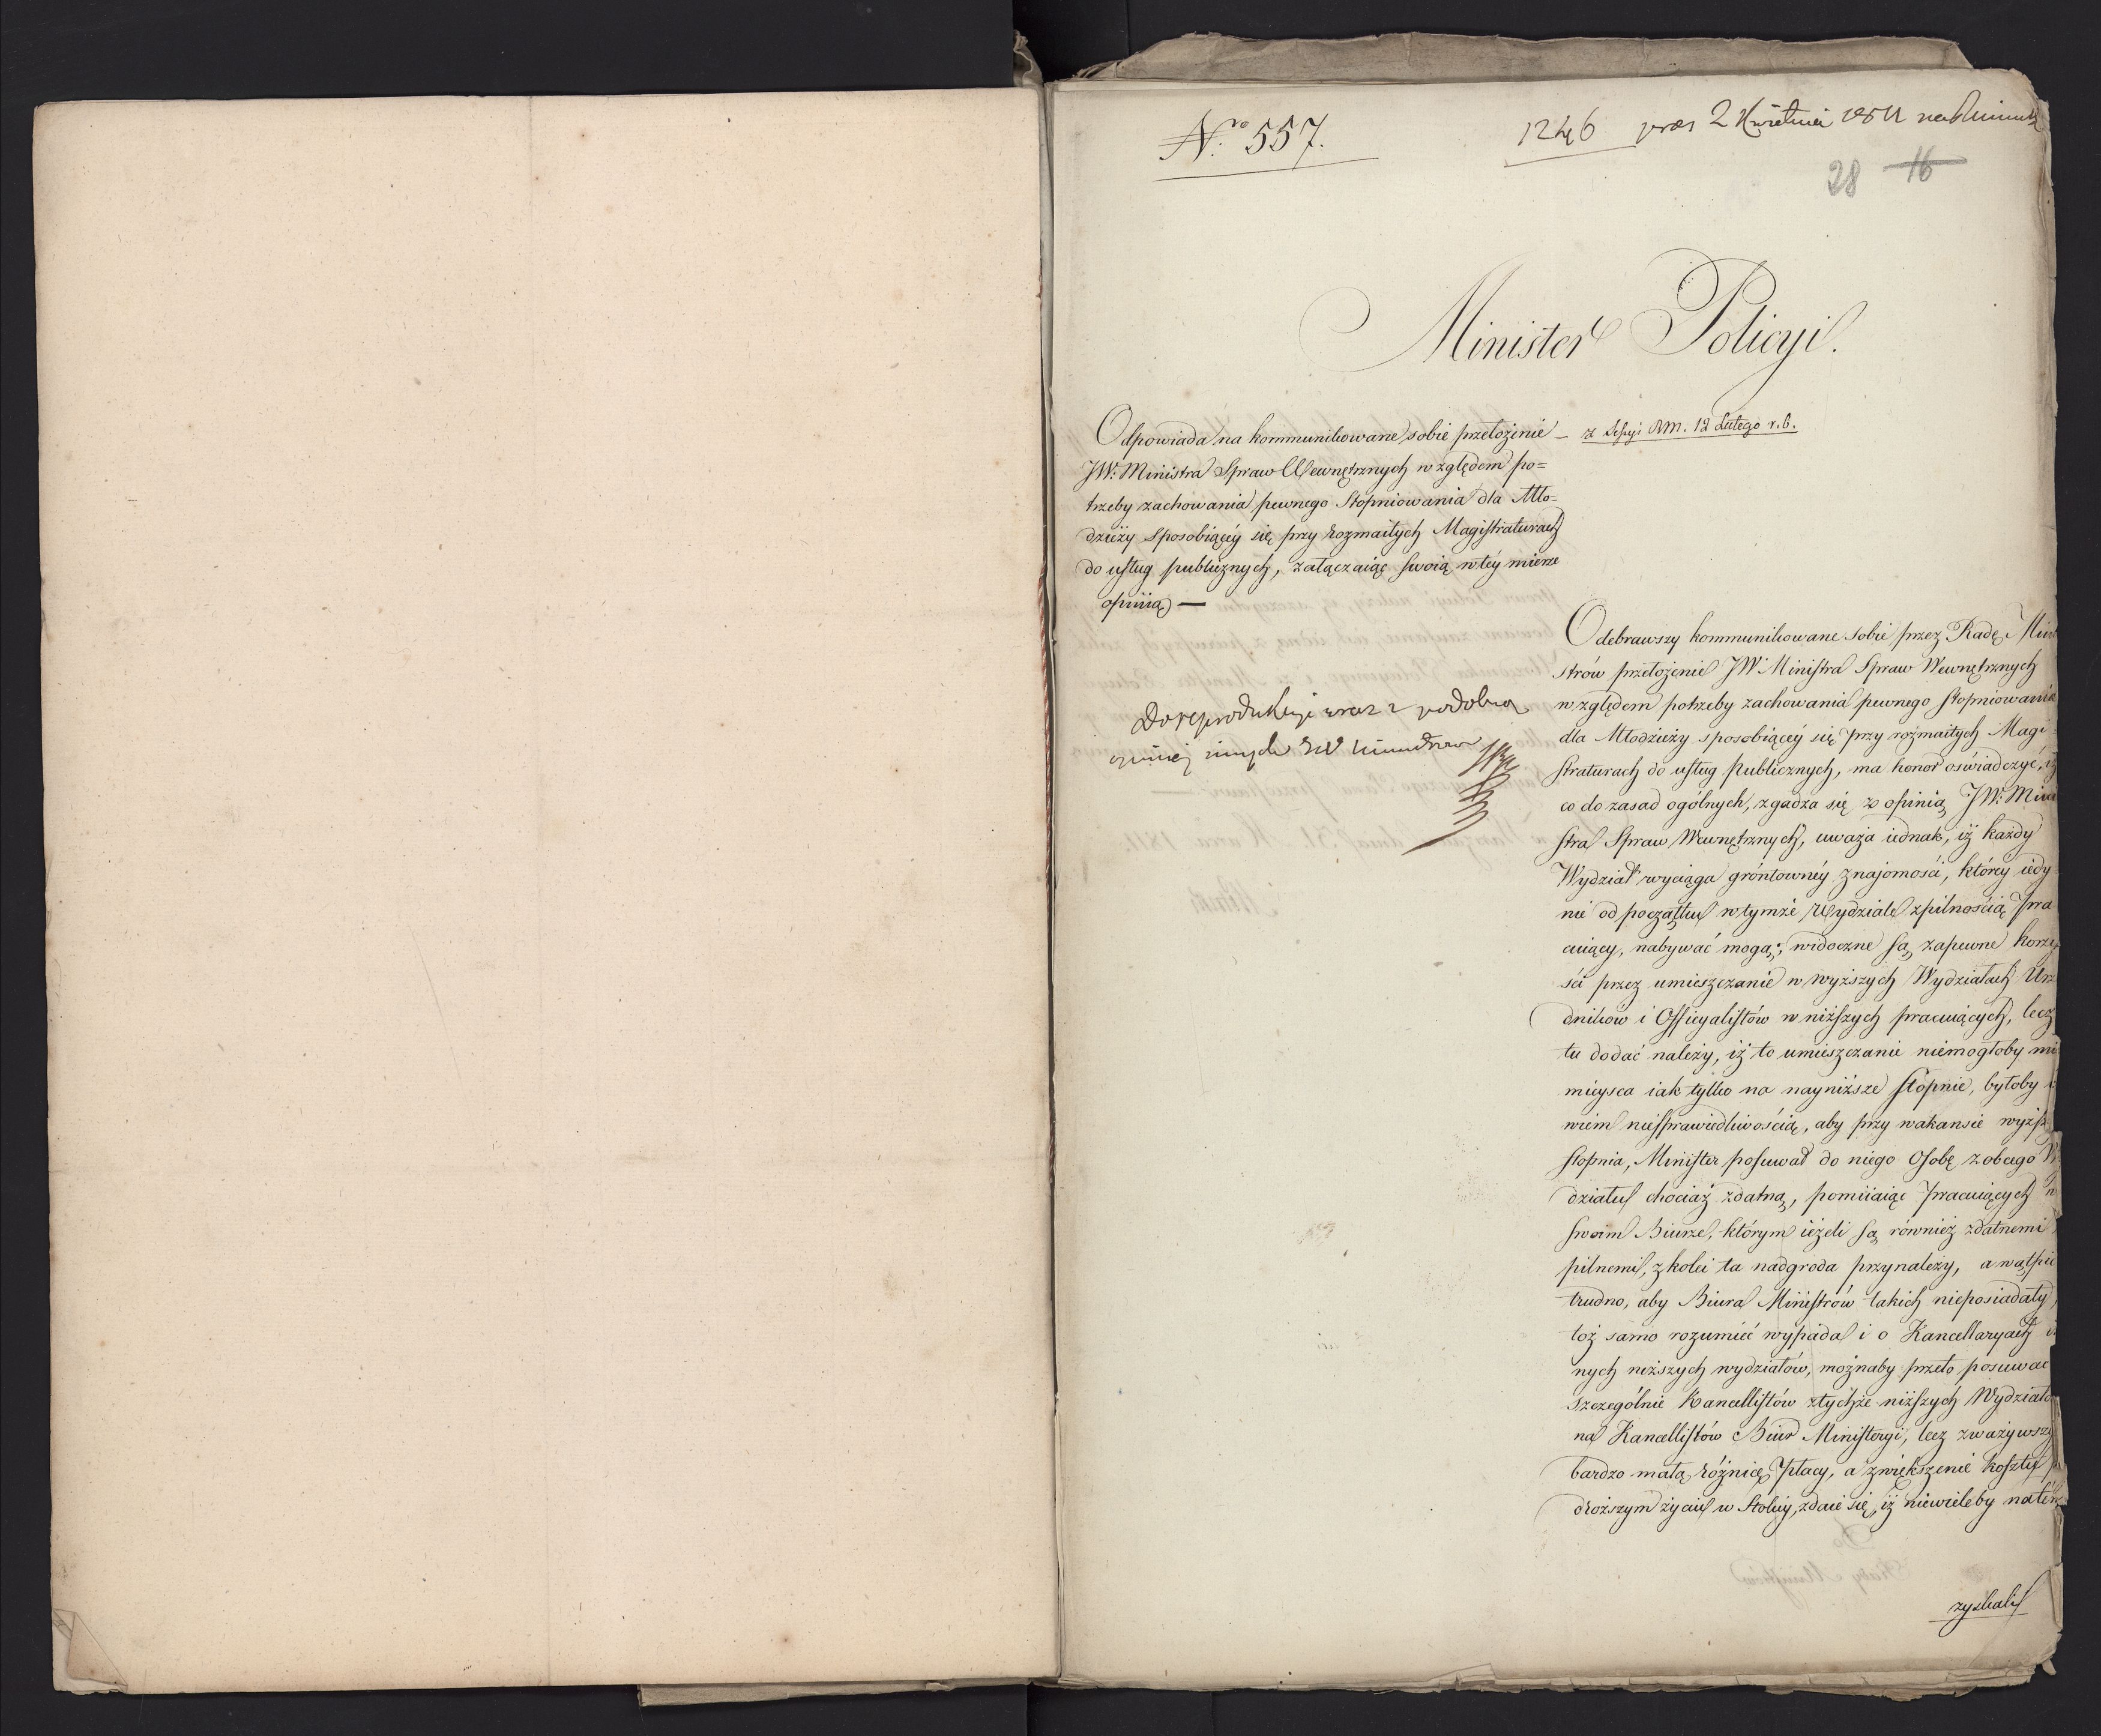 Nro 557.
1246 prez 2 Kwietnia 1811
28 16
Minister Policyi.
Odpowiada na kommunikowane sobie przełożenie – z Sessyi RM. 12 Lutego r. b.
JW: Ministra Spraw Wewnętrznych względem po=
trzeby zachowania pewnego Stopniowania dla Mło=
dzieży sposobiącéy się przy rozmaitych Magistraturach
do usług publicznych, załączaiąc swoią w téy mierze
opiniią —
Do reprodukcyi wraz z podobną
opinią innych JW Ministrów
Odebrawszy kommunikowane sobie przez Radę Mini
strów przełożenie JW: Ministra Spraw Wewnętrznych
względem potrzeby zachowania pewnego stopniowania
dla Młodzieży sposobiącéy się przy rozmaitych Magi
straturach do usług Publicznych, ma honor oświadczyć, iż
co do zasad ogólnych, zgadza się z opinią JW: Mini
stra Spraw Wewnętrznych, uważa iednak, iż każdy
Wydział wyciąga gróntownéy znajomości, któréy iedy
nie od początku w tymże Wydziale z pilnością pra
cuiący, nabywać mogą; widoczne są zapewne korzy
ści przez umieszczanie w wyższych Wydziałach Urzę
dników i Officyalistów w niższych pracuiących, lecz
tu dodać należy, iż to umieszczanie niemogłoby mi
mieysca iak tylko na nayniższe stopnie, byłoby
wiem niesprawiedliwością, aby przy wakansie wyższ
stopnia, Minister posuwał do niego Osobę z obcego Wy
działu chociaż zdatną, pomiiaiąc pracuiących w
swoim Biurze, którym ieżeli są również zdatnemi
pilnemi, z kolei ta nadgroda przynależy, a wątpić
trudno, aby Biura Ministrów takich nieposiadały,
toż samo rozumieć wypada i o Kancellaryach in
nych niższych wydziałów, możnaby przeto posuwać
szczególnie Kancellistów z tychże niższych Wydziałów
na Kancellistów Biur Ministeryi, lecz zważywszy
bardzo małą różnicę płacy, a zwiększenie kosztu
droższym życiu w Stolicy, zdaie się, iż niewieleby na tém
zyskali